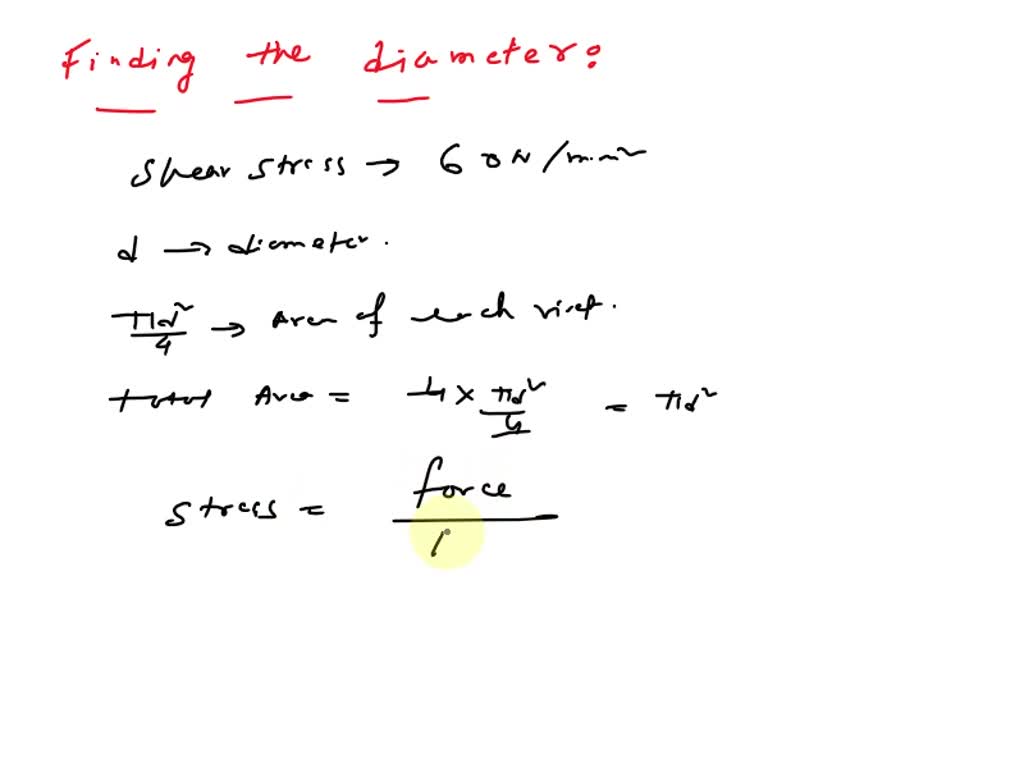 Finding the diameter:
Shear stress → 60N/mm²
d → diameter.
πd²/4 → Area of each rivet.
total Area = 4 × πd²/4 = πd²
stress = force /